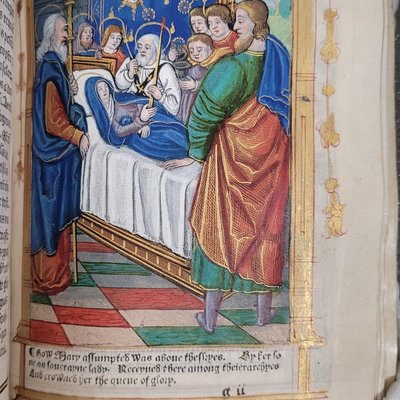 How Mary assumpted was aboue theskyes. By her so
ne as souerayne lady. Receyued there among theierarchyes
And crowned her the quene of glory.
g ii